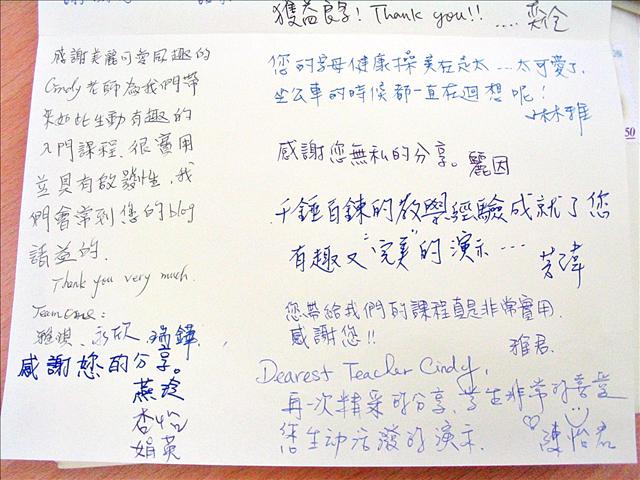 獲益良多! Thank you!! ....
感謝美麗可愛風趣的
Cindy老師為我們帶
來如此生動有趣的
入門課程,很實用
並具有啟發性,我
們會常到您的blog
請益的.
Thank you very much.
雅琪、永欣 瑞鏵
感謝您的分享。
燕玲
杏怡
娟英
您的字母健康操實在是太...太可愛了,
坐公車的時候都一直在回想呢!
小林雅
感謝您無私的分享。麗因
千錘百鍊的教學經驗成就了您
有趣又"完美"的演示…
芳瑋
您帶給我們的課程真是非常實用.
感謝您!!
雅君.
Dearest Teacher Cindy,
再一次精采的分享,學生非常的喜愛
您生動活潑的演示.
陳怡君
50